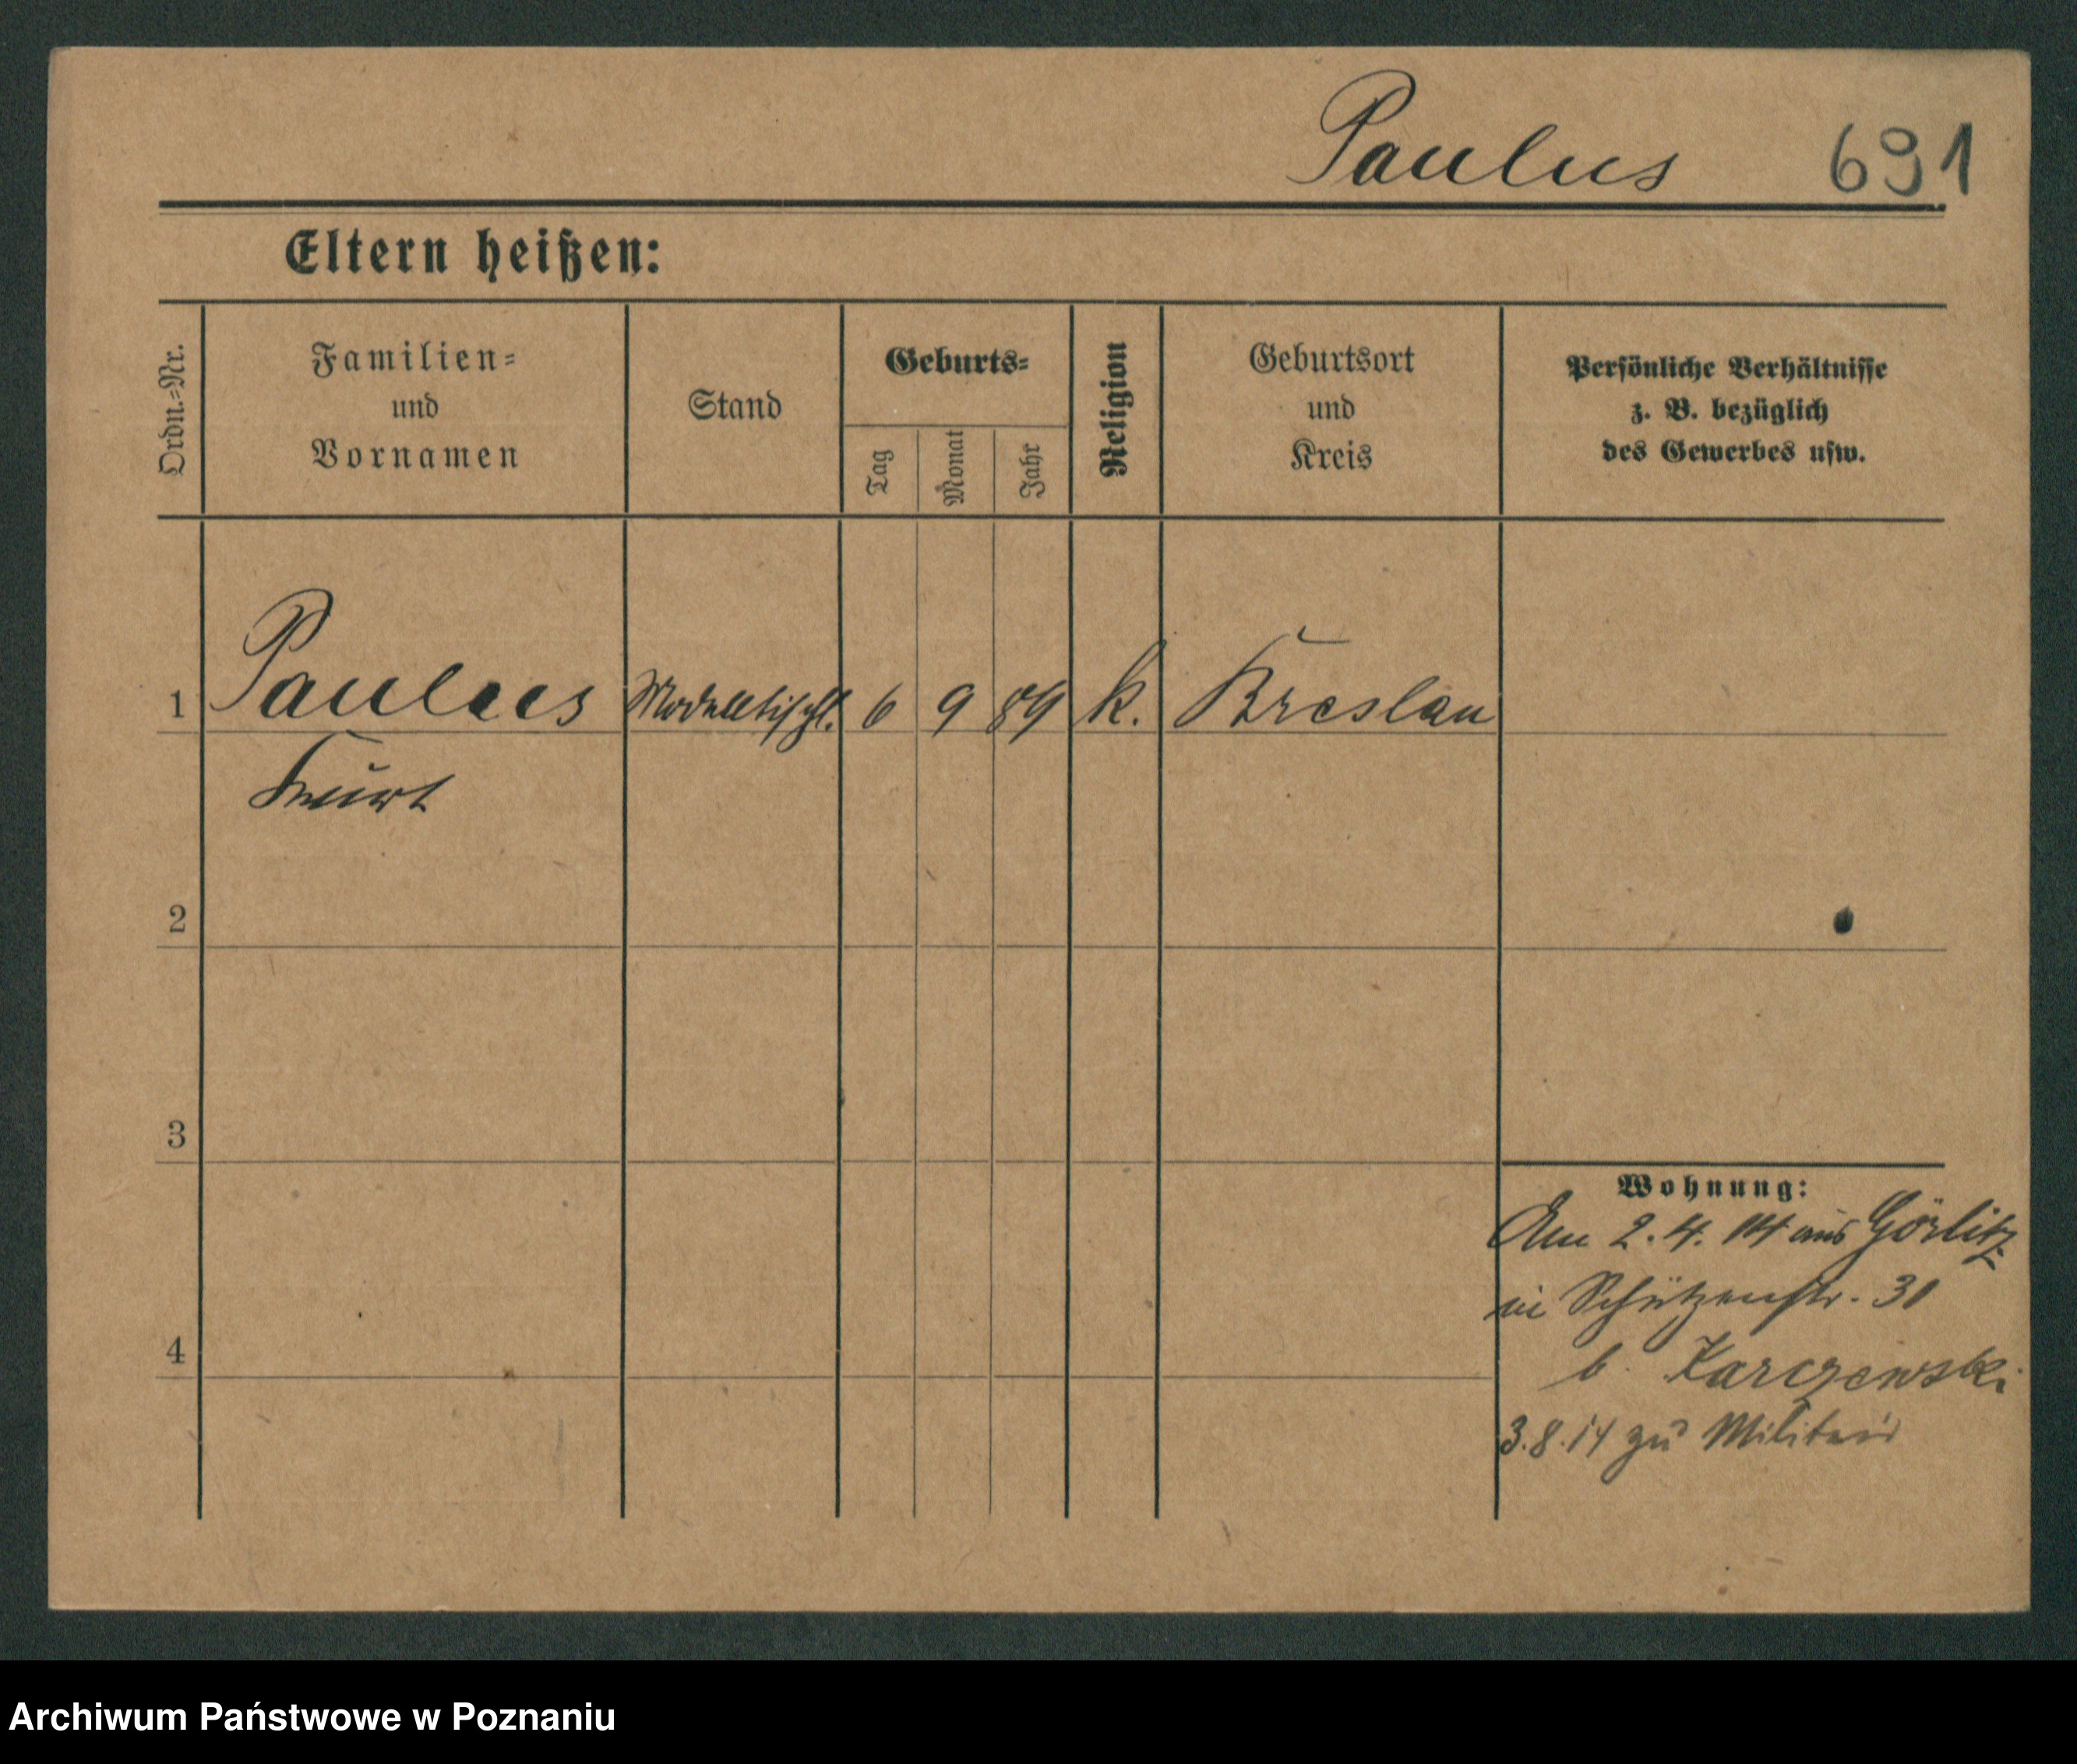 Paulus 691
Eltern heißen:
Ordn.-Nr.
Familien-
und
Vornamen
Stand
Geburts-
Tag
Monat
Jahr
Religion
Geburtsort
und
Kreis
Persönliche Verhältnisse
z. B. bezüglich
des Gewerbes usw.
1 Paulus Modelltischl. 6 9 89 k. Breslau
Kurt
2
3
Wohnung:
Am 2. 4. 14 aus Görlitz
in Schützenstr. 31
4
b. Karczewski
3. 8. 14 zu Militär
Archiwum Państwowe w Poznaniu